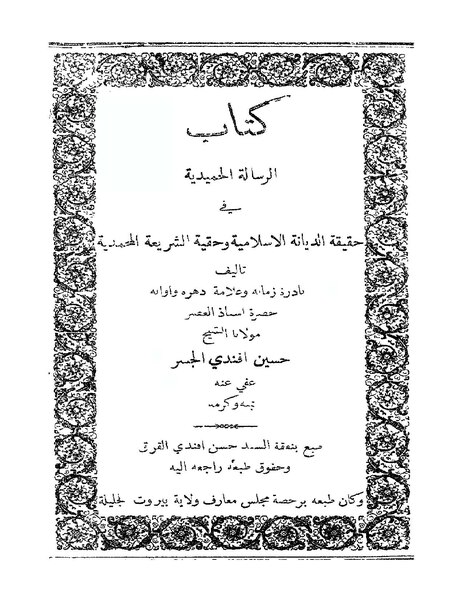 كتاب
الرسالة الحميدية
في
حقيقة الديانة الاسلامية وحقية الشريعة المحمدية
تاليف
نادرة زمانه وعلامة دهره واوانه
حضرة استاذ العصر
مولانا الشيخ
حسين افندي الجسر
عفي عنه
بمنه وكرمه
طبع بنفقة السيد حسن افندي القرق
وحقوق طبعه راجعه اليه
وكان طبعه برخصة مجلس معارف ولاية بيروت لجليلة